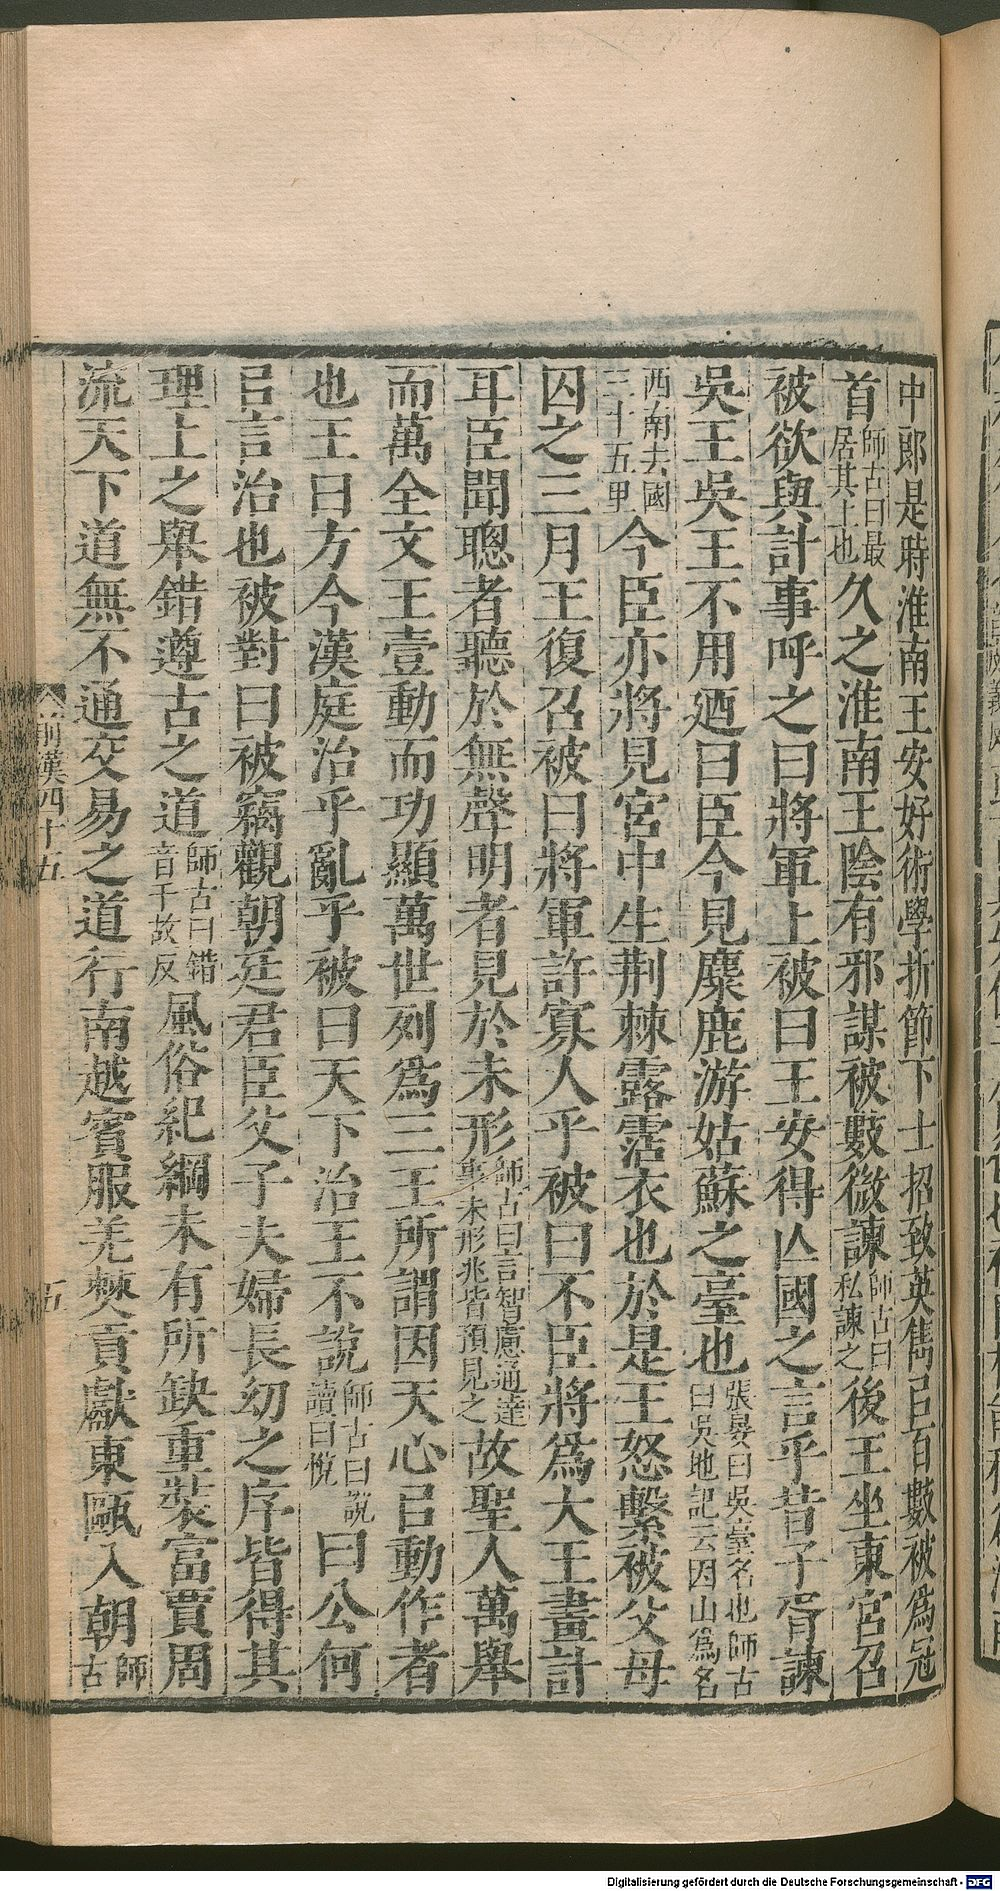 中郎是時淮南王安好術學折節下士招致英雋㠯百數被爲冠
首師古曰最居其上也久之淮南王陰有邪謀被數微諫師古曰私諫之後王坐東宮召
被欲與計事呼之曰將軍上被曰王安得亾國之言乎昔子胥諫
吳王吳王不用廼曰臣今見麋鹿游姑蘇之臺也張晏曰吳臺名也師古曰吳地記云因山爲名
西南去國三十五里今臣亦將見宮中生荆棘露霑衣也於是王怒繫被父母
囚之三月王復召被曰將軍許寡人乎被曰不臣將爲大王畫計
耳臣聞聰者聽於無聲明者見於未形師古曰言智慮通達事未形兆皆預見之故聖人萬舉
而萬全文王壹動而功顯萬世列爲三王所謂因天心㠯動作者
也王曰方今漢庭治乎亂乎被曰天下治王不說師古曰說讀曰悅曰公何
㠯言治也被對曰被竊觀朝廷君臣父子夫婦長幼之序皆得其
理上之舉錯遵古之道師古曰錯音千故反風俗紀綱未有所缺重裝富賈周
流天下道無不通交易之道行南越賓服羌僰貢獻東甌入朝師古
前漢四十五
五
Digitalisierung gefördert durch die Deutsche Forschungsgemeinschaft - DFG